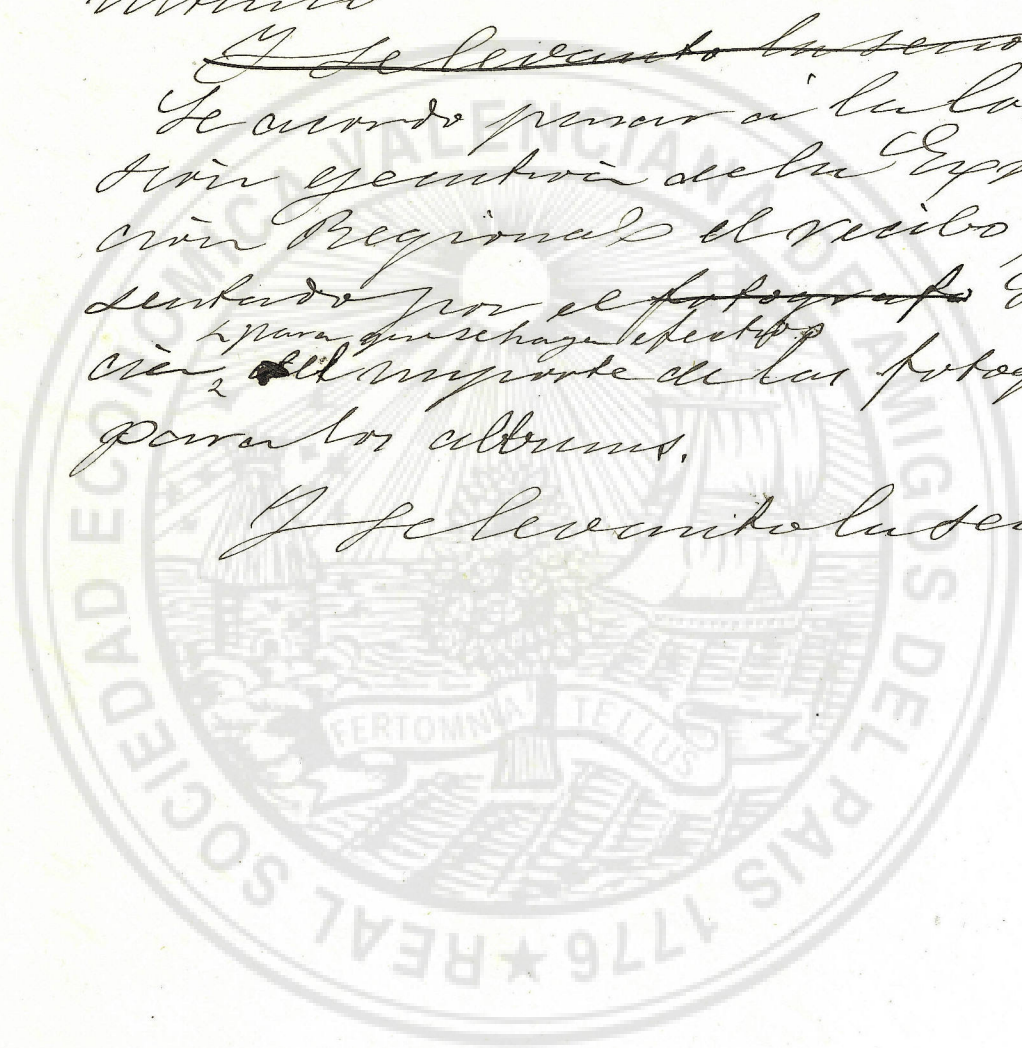 Y se levanto la sesio
Se acordo pasar á la Co
sión ejecutiva de la Exp
ción Regional el recibo
sentado por el fotografo
para que se haga efectivo
cia, el importe de las fotog
para los albums.
Y se levanto la ses
REAL SOCIEDAD ECONOMICA VALENCIANA DE AMIGOS DEL PAIS 1776 ★
FERT OMNIA TELLUS